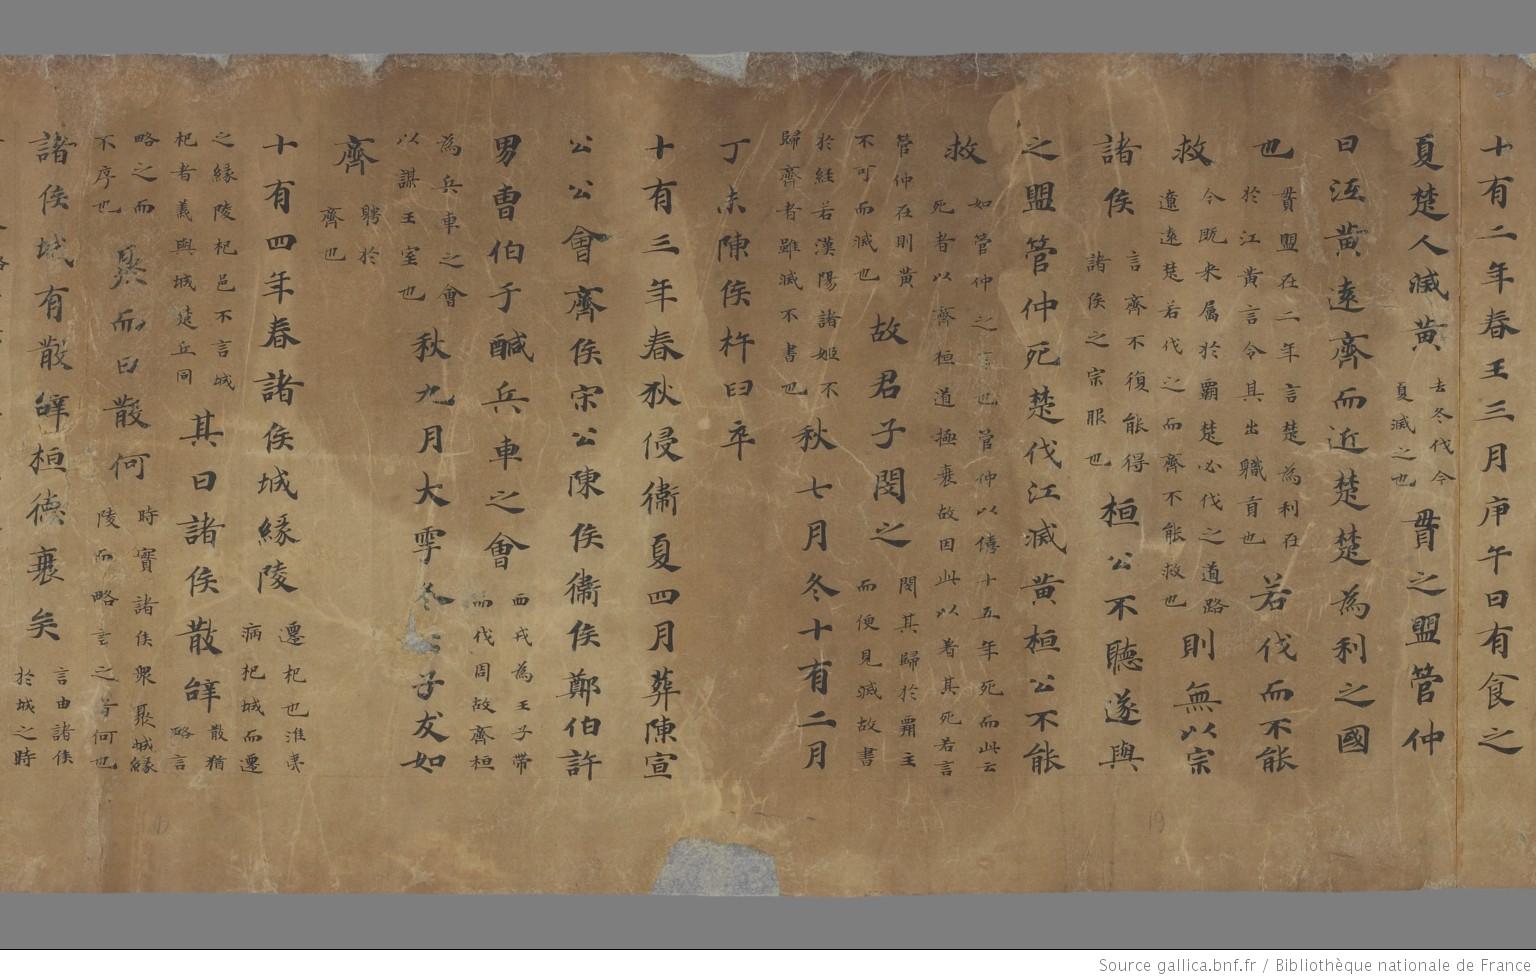 十有二年春王三月庚午日有食之
夏楚人滅黃 去冬伐今夏滅之也 貫之盟管仲
曰江黃遠齊而近楚楚為利之國
也 貫盟在二年言楚為利在於江黃言令其出職貢也 若伐而不能
救 今既来属於霸楚必伐之道路遼遠楚若伐之而齊不能救也 則無以宗
諸侯 言齊不復能得諸侯之宗服也 桓公不聽遂與
之盟管仲死楚伐江滅黃桓公不能
救 如管仲之言也管仲以僖十五年死而此云死者以齊桓道極衰故因此以著其死若言
管仲在則黃不可而滅也 故君子閔之 閔其歸於霸主而便見滅故書
於経若漢陽諸姬不歸齊者雖滅不書也 秋七月冬十有二月
丁未陳侯杵臼卒
十有三年春狄侵衛夏四月葬陳宣
公公會齊侯宋公陳侯衛侯鄭伯許
男曹伯于鹹兵車之會 西戎為王子帶而伐周故齊桓
為兵車之會以謀王室也 秋九月大雩冬公子友如
齊 聘於齊也
十有四年春諸侯城緣陵 遷杞也淮夷病杞城而遷
之緣陵杞邑不言城杞者義與城楚丘同 其曰諸侯散辝 散猶略言
略之而不序也 聚而曰散何 時實諸侯眾聚城緣陵而略言之者何也
諸侯城有散辝桓德衰矣 言由諸侯於城之時